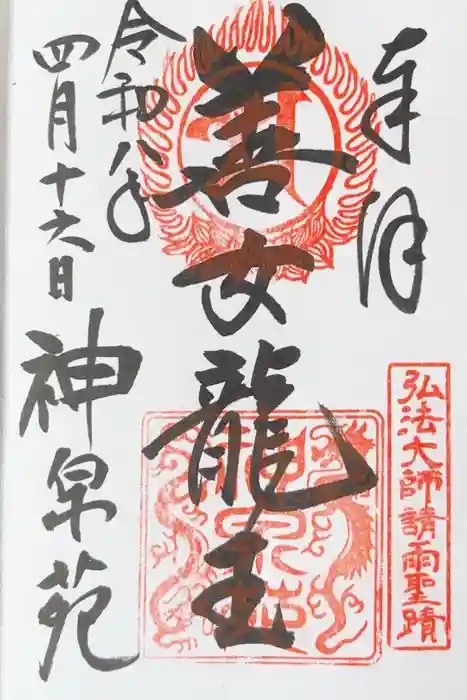 奉拝
弘法大師請雨聖蹟
善女龍王
令和八年
四月十六日
神泉苑